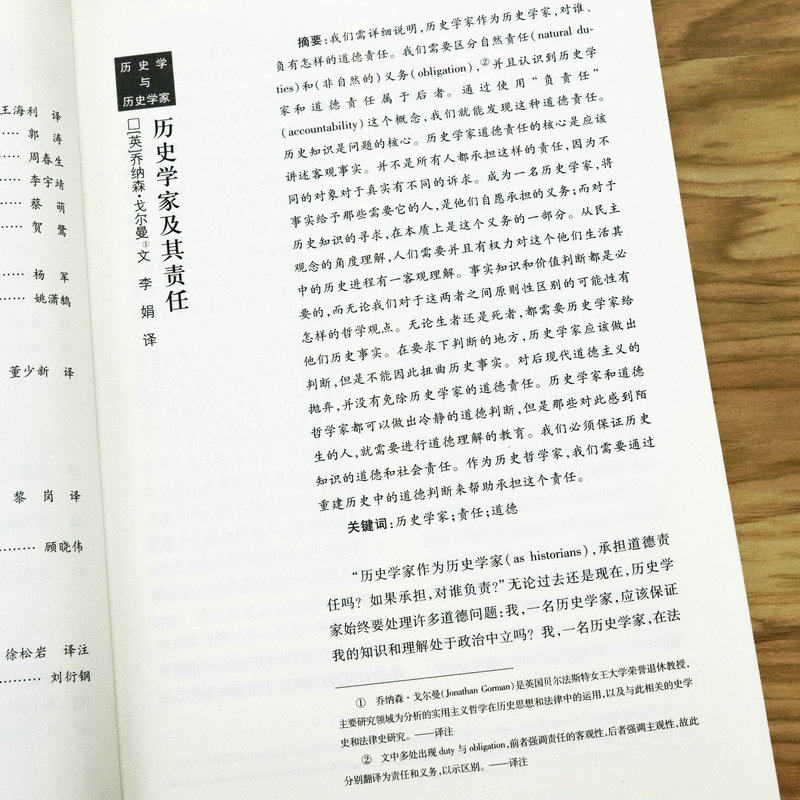 王海利 译
郭 涛
周春生
李宇靖
蔡 萌
贺 鹭
杨 军
姚潇鸫
董少新 译
黎 岗 译
顾晓伟
徐松岩 译注
刘衍钢
历 史 学
与
历史学家
历史学家及其责任
□[英]乔纳森·戈尔曼①文 李 娟 译
摘要:我们需详细说明,历史学家作为历史学家,对谁、
负有怎样的道德责任。我们需要区分自然责任(natural du-
ties)和(非自然的)义务(obligation),②并且认识到历史学
家和道德责任属于后者。通过使用“负责任”
(accountability)这个概念,我们就能发现这种道德责任。
历史知识是问题的核心。历史学家道德责任的核心是应该
讲述客观事实。并不是所有人都承担这样的责任,因为不
同的对象对于真实有不同的诉求。成为一名历史学家,将
事实给予那些需要它的人,是他们自愿承担的义务;而对于
历史知识的寻求,在本质上是这个义务的一部分。从民主
观念的角度理解,人们需要并且有权力对这个他们生活其
中的历史进程有一客观理解。事实知识和价值判断都是必
要的,而无论我们对于这两者之间原则性区别的可能性有
怎样的哲学观点。无论生者还是死者,都需要历史学家给
他们历史事实。在要求下判断的地方,历史学家应该做出
判断,但是不能因此扭曲历史事实。对后现代道德主义的
抛弃,并没有免除历史学家的道德责任。历史学家和道德
哲学家都可以做出冷静的道德判断,但是那些对此感到陌
生的人,就需要进行道德理解的教育。我们必须保证历史
知识的道德和社会责任。作为历史哲学家,我们需要通过
重建历史中的道德判断来帮助承担这个责任。
关键词:历史学家;责任;道德
“历史学家作为历史学家(as historians),承担道德责
任吗?如果承担,对谁负责?”无论过去还是现在,历史学
家始终要处理许多道德问题:我,一名历史学家,应该保证
我的知识和理解处于政治中立吗?我,一名历史学家,在法
① 乔纳森·戈尔曼(Jonathan Gorman)是英国贝尔法斯特女王大学荣誉退休教授,
主要研究领域为分析的实用主义哲学在历史思想和法律中的运用,以及与此相关的史学
史和法律史研究。——译注
② 文中多处出现 duty 与 obligation,前者强调责任的客观性,后者强调主观性,故此
分别翻译为责任和义务,以示区别。——译注